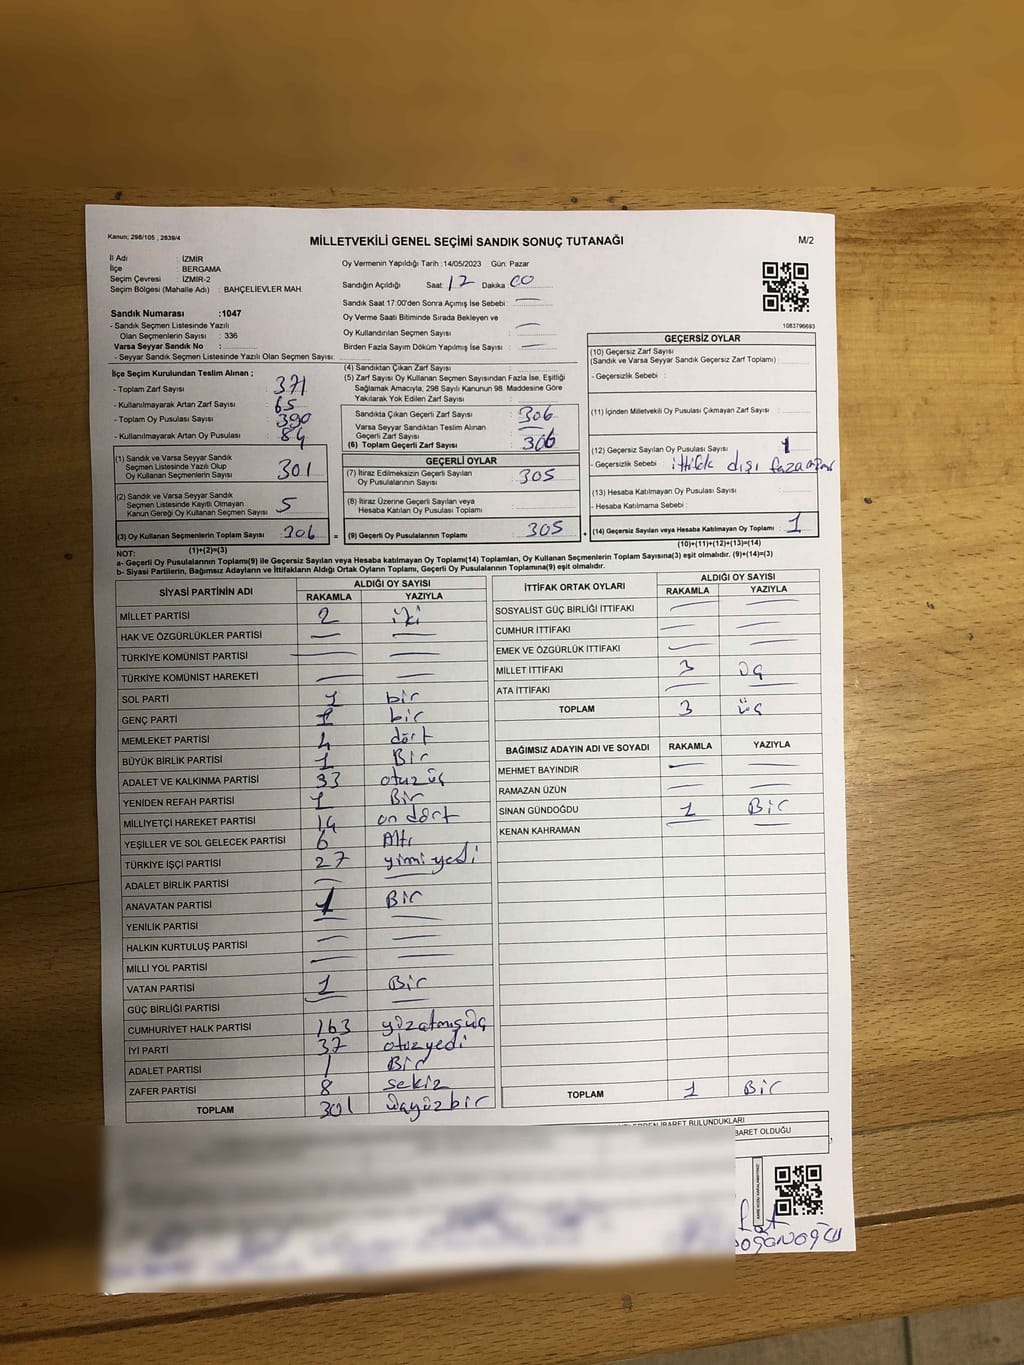 Kanun: 298/105 , 2839/4
MİLLETVEKİLİ GENEL SEÇİMİ SANDIK SONUÇ TUTANAĞI
M/2
İl Adı : İZMİR
İlçe : BERGAMA
Seçim Çevresi : İZMİR-2
Seçim Bölgesi (Mahalle Adı) : BAHÇELİEVLER MAH.
Oy Vermenin Yapıldığı Tarih :14/05/2023 Gün: Pazar
Sandığın Açıldığı Saat: 17 Dakika: 00
Sandık Saat 17:00'den Sonra Açılmış İse Sebebi : —
Oy Verme Saati Bitiminde Sırada Bekleyen ve
Oy Kullandırılan Seçmen Sayısı : —
Birden Fazla Sayım Döküm Yapılmış İse Sayısı : —
1083796693
Sandık Numarası :1047
- Sandık Seçmen Listesinde Yazılı
Olan Seçmenlerin Sayısı : 336
Varsa Seyyar Sandık No :
- Seyyar Sandık Seçmen Listesinde Yazılı Olan Seçmen Sayısı:
İlçe Seçim Kurulundan Teslim Alınan ;
- Toplam Zarf Sayısı : 371
- Kullanılmayarak Artan Zarf Sayısı : 65
- Toplam Oy Pusulası Sayısı : 390
- Kullanılmayarak Artan Oy Pusulası : 84
(1) Sandık ve Varsa Seyyar Sandık
Seçmen Listesinde Yazılı Olup
Oy Kullanan Seçmenlerin Sayısı : 301
(2) Sandık ve Varsa Seyyar Sandık
Seçmen Listesinde Kayıtlı Olmayan
Kanun Gereği Oy Kullanan Seçmen Sayısı : 5
(3) Oy Kullanan Seçmenlerin Toplam Sayısı : 306
(1)+(2)=(3)
(4) Sandıktan Çıkan Zarf Sayısı :
(5) Zarf Sayısı Oy Kullanan Seçmen Sayısından Fazla İse, Eşitliği
Sağlamak Amacıyla, 298 Sayılı Kanunun 98. Maddesine Göre
Yakılarak Yok Edilen Zarf Sayısı :
Sandıkta Çıkan Geçerli Zarf Sayısı : 306
Varsa Seyyar Sandıktan Teslim Alınan
Geçerli Zarf Sayısı : —
(6) Toplam Geçerli Zarf Sayısı : 306
GEÇERLİ OYLAR
(7) İtiraz Edilmeksizin Geçerli Sayılan
Oy Pusulalarının Sayısı : 305
(8) İtiraz Üzerine Geçerli Sayılan veya
Hesaba Katılan Oy Pusulası Toplamı :
= (9) Geçerli Oy Pusulalarının Toplamı : 305
GEÇERSİZ OYLAR
(10) Geçersiz Zarf Sayısı
(Sandık ve Varsa Seyyar Sandık Geçersiz Zarf Toplamı) :
- Geçersizlik Sebebi :
(11) İçinden Milletvekili Oy Pusulası Çıkmayan Zarf Sayısı :
(12) Geçersiz Sayılan Oy Pusulası Sayısı : 1
- Geçersizlik Sebebi : ittifak dışı
(13) Hesaba Katılmayan Oy Pusulası Sayısı :
- Hesaba Katılmama Sebebi :
+ (14) Geçersiz Sayılan veya Hesaba Katılmayan Oy Toplamı : 1
(10)+(11)+(12)+(13)=(14)
NOT:
a- Geçerli Oy Pusulalarının Toplamı(9) ile Geçersiz Sayılan veya Hesaba katılmayan Oy Toplamı(14) Toplamları, Oy Kullanan Seçmenlerin Toplam Sayısına(3) eşit olmalıdır. (9)+(14)=(3)
b- Siyasi Partilerin, Bağımsız Adayların ve İttifakların Aldığı Ortak Oyların Toplamı, Geçerli Oy Pusulalarının Toplamına(9) eşit olmalıdır.
SİYASİ PARTİNİN ADI ALDIĞI OY SAYISI
RAKAMLA YAZIYLA
MİLLET PARTİSİ 2 iki
HAK VE ÖZGÜRLÜKLER PARTİSİ — —
TÜRKİYE KOMÜNİST PARTİSİ — —
TÜRKİYE KOMÜNİST HAREKETİ — —
SOL PARTİ 1 bir
GENÇ PARTİ 1 bir
MEMLEKET PARTİSİ 4 dört
BÜYÜK BİRLİK PARTİSİ 1 Bir
ADALET VE KALKINMA PARTİSİ 33 otuz üç
YENİDEN REFAH PARTİSİ 1 Bir
MİLLİYETÇİ HAREKET PARTİSİ 14 on dört
YEŞİLLER VE SOL GELECEK PARTİSİ 6 Altı
TÜRKİYE İŞÇİ PARTİSİ 27 yirmi yedi
ADALET BİRLİK PARTİSİ — —
ANAVATAN PARTİSİ 1 Bir
YENİLİK PARTİSİ — —
HALKIN KURTULUŞ PARTİSİ — —
MİLLİ YOL PARTİSİ — —
VATAN PARTİSİ 1 Bir
GÜÇ BİRLİĞİ PARTİSİ — —
CUMHURİYET HALK PARTİSİ 163 yüzatmışüç
İYİ PARTİ 37 otuzyedi
ADALET PARTİSİ 1 Bir
ZAFER PARTİSİ 8 sekiz
TOPLAM 301 üçyüzbir
İTTİFAK ORTAK OYLARI ALDIĞI OY SAYISI
RAKAMLA YAZIYLA
SOSYALİST GÜÇ BİRLİĞİ İTTİFAKI — —
CUMHUR İTTİFAKI — —
EMEK VE ÖZGÜRLÜK İTTİFAKI — —
MİLLET İTTİFAKI 3 üç
ATA İTTİFAKI — —
TOPLAM 3 üç
BAĞIMSIZ ADAYIN ADI VE SOYADI RAKAMLA YAZIYLA
MEHMET BAYINDIR — —
RAMAZAN ÜZÜN — —
SİNAN GÜNDOĞDU 1 Bir
KENAN KAHRAMAN — —
TOPLAM 1 Bir
İBARET BULUNDUKLARI
BARET OLDUĞU